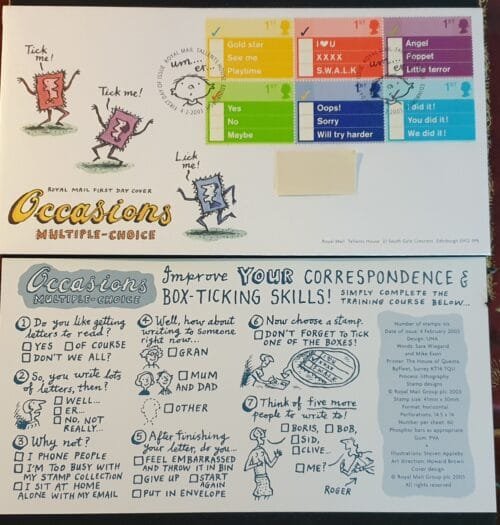 Tick
me!
Tick me!
Lick
me!
ROYAL MAIL FIRST DAY COVER
Occasions
MULTIPLE-CHOICE
FIRST DAY OF ISSUE ROYAL MAIL TALLENTS HOUSE
4.2.2003
um...
er...
um...
er...
1ST
Gold star
See me
Playtime
1ST
I ♥ U
XXXX
S.W.A.L.K.
1ST
Angel
Poppet
Little terror
1ST
Yes
No
Maybe
1ST
Oops!
Sorry
Will try harder
1ST
I did it!
You did it!
We did it!
Royal Mail Tallents House 21 South Gyle Crescent Edinburgh EH12 9PB
Occasions
MULTIPLE-CHOICE
Improve YOUR CORRESPONDENCE &
BOX-TICKING SKILLS! SIMPLY COMPLETE THE
TRAINING COURSE BELOW...
1 Do you like getting
letters to read?
YES OF COURSE
DON'T WE ALL?
2 So, you write lots
of letters, then?
WELL...
ER...
NO, NOT
REALLY...
3 Why not?
I PHONE PEOPLE
I'M TOO BUSY WITH
MY STAMP COLLECTION
I SIT AT HOME
ALONE WITH MY EMAIL
4 Well, how about
writing to someone
right now...
GRAN
MUM
AND DAD
OTHER
5 After finishing
your letter, do you...
FEEL EMBARRASSED
AND THROW IT IN BIN
GIVE UP START
AGAIN
PUT IN ENVELOPE
6 Now choose a stamp.
DON'T FORGET TO TICK
ONE OF THE BOXES!
7 Think of five more
people to write to!
BORIS, BOB,
SID,
CLIVE...
ME?
ROGER
Number of stamps: six
Date of issue: 4 February 2003
Design: UNA
Words: Sara Wiegand
and Mike Exon
Printer: The House of Questa,
Byfleet, Surrey KT14 7QU
Process: lithography
Stamp designs
© Royal Mail Group plc 2003
Stamp size: 41mm x 30mm
Format: horizontal
Perforations: 14.5 x 14
Number per sheet: 60
Phosphor: bars as appropriate
Gum: PVA
Illustrations: Steven Appleby
Art direction: Howard Brown
Cover design
© Royal Mail Group plc 2003
All rights reserved